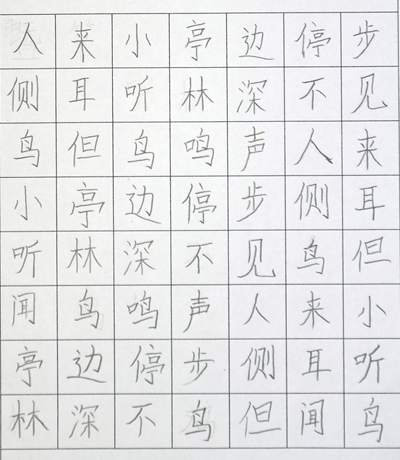 人来小亭边停步
侧耳听林深不见
鸟但鸟鸣声人来
小亭边停步侧耳
听林深不见鸟但
闻鸟鸣声人来小
亭边停步侧耳听
林深不鸟但闻鸟